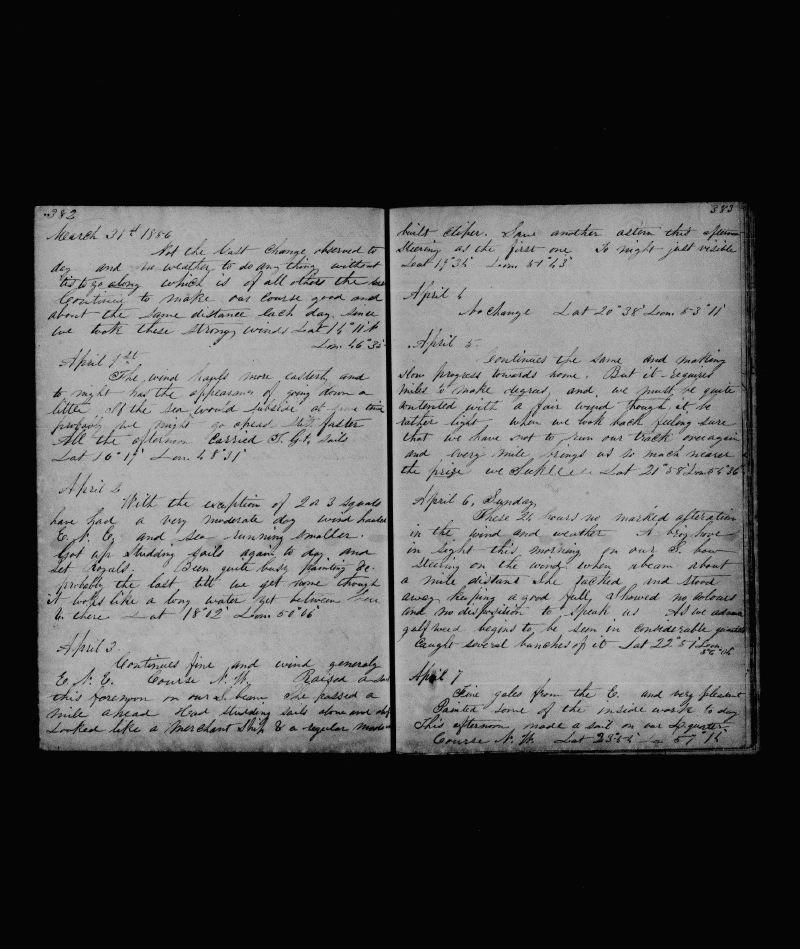 382
March 31st 1856
Not the last change observed to
day and no weather to do any thing without
'tis to go along which is of all others the
Continue to make our course good and
about the same distance each day since
we took these strong winds Lat 14° 11' N
Lon. 46° 35'
April 1st
The wind hauls more easterly and
to night has the appearance of going down a
little. If the sea would subside at time
probably we might go ahead faster
All the afternoon carried T. G. sails
Lat 16° 19' Lon. 48° 31'
April 2
With the exception of 2 or 3 squals
have had a very moderate day wind
E. N. E. and sea running smaller.
Got up studding sails again to day and
set Royals. Been quite busy painting &c.
probably the last till we get home though
it looks like a long water yet between here
& there Lat 18° 02' Lon. 50° 06'
April 3
Continues fine and wind generaly
E. N. E. Course N. W. Raised a sail
this forenoon on our beam she passed a
mile ahead Had studding sails alow and
Looked like a Merchant Ship & a regular
383
built cliper. Saw another astern this
steering as the first one To night just visible
Lat 19° 34' Lon. 51° 43'
April 4
No change Lat 20° 38' Lon. 53° 11'
April 5
Continues the same and making
slow progress towards home. But it requires
miles to make degrees, and we must be quite
contented with a fair wind though it be
rather light when we look back feeling sure
that we have not to run our track over again
and every mile brings us so much nearer
the prize we Lat 21° 58' Lon 54° 36'
April 6, Sunday,
These 24 hours no marked alteration
in the wind and weather A brig hove
in sight this morning on our bow
steering on the wind when abeam about
a mile distant she tacked and stood
away keeping a good full, showed no colours
and no disposition to speak us As we
gulf weed begins to be seen in considerable
Caught several bunches of it Lat 22° 51' Lon.
56° 04'
April 7
Fine gales from the E. and very pleasant
Painted some of the inside work to day
This afternoon made a sail on our quarter
Course N. W. Lat Lon 57° 14'